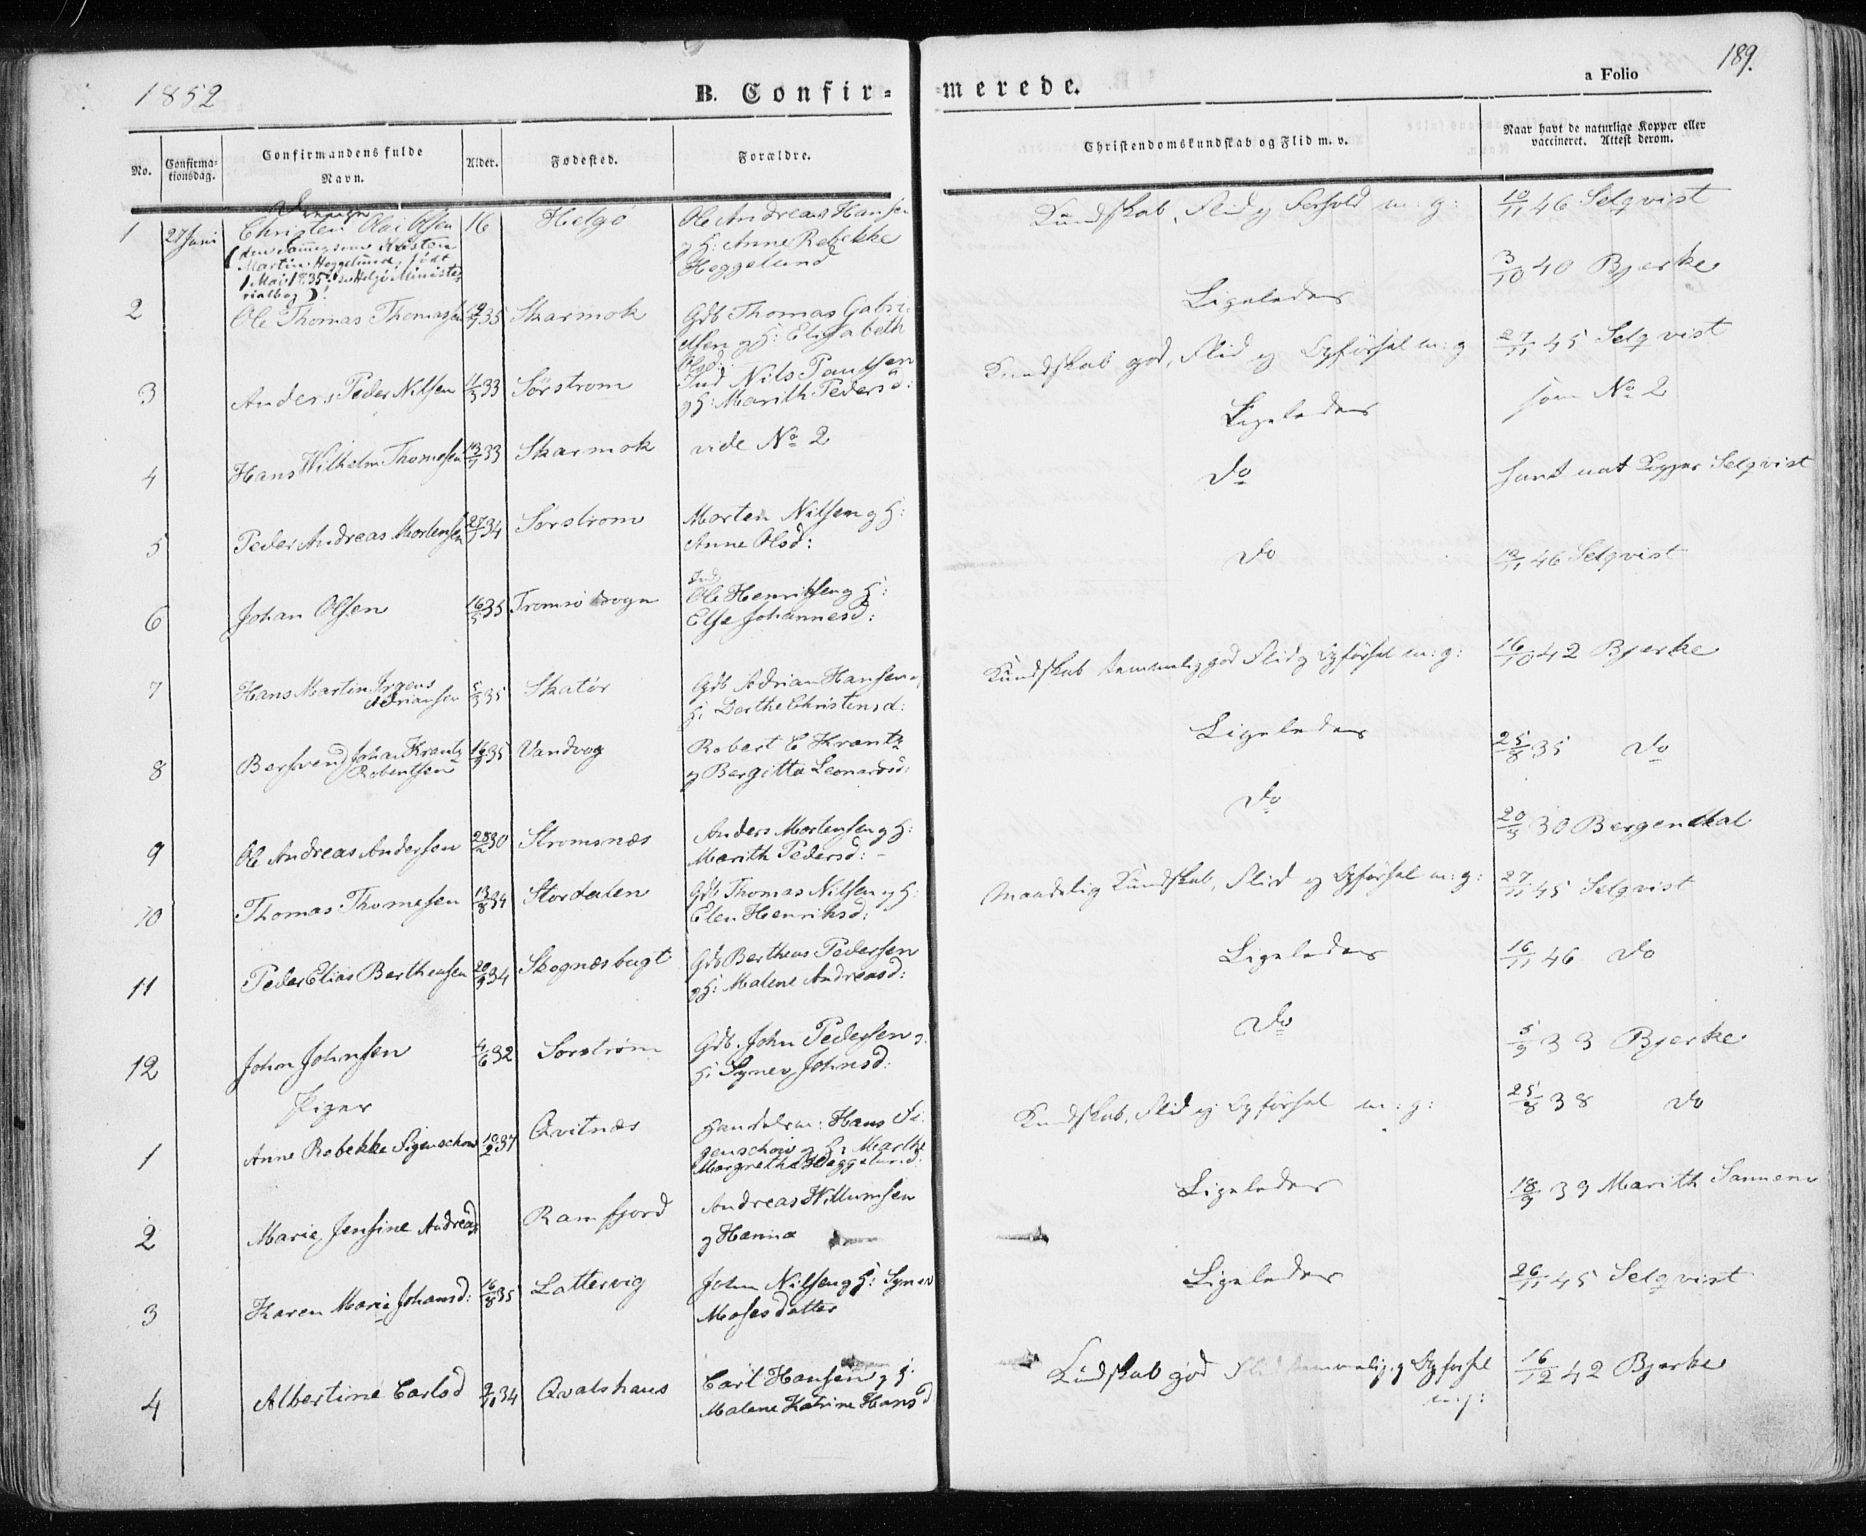 1852
B. Confir=
=merede.
a Folio
189.
No.
Confirma-
tionsdag.
Confirmandens fulde
Navn.
Alder.
Fødested.
Forældre.
Christendomskundskab og Flid m. v.
Naar havt de naturlige Kopper eller
vaccineret. Attest derom.
Drenge
1 27 Juni Christen Olai Olsen 16 Helgö Ole Andreas Hansen
og H: Anne Rebekke
Heggelund
Martin Heggelund, født
1 Mai 1835
Kundskab, Flid og Forhold m: g:
10/11 46 Selqvist
2 Ole Thomas Thomassen 35 Skarmok Gdb Thomas Gabri-
elsen og H: Elisabeth
Olsd:
Ligeledes
3/10 40 Bjerke
3 Anders Peder Nilsen 33 Sørstrøm Ind Nils Paulsen
og H: Marith Pedersd:
Kundskab god, Flid og Opførsel m: g
27/11 45 Selqvist
4 Hans Wilhelm Thomesen 33 Skarmok vide No 2
Ligeledes
som No 2
5 Peder Andreas Mortensen 34 Sørstrøm Morten Nilsen og H:
Anne Olsd:
Do
havt nat Kopper Selqvist
6 Johan Olsen 16/5 35 Tromsö Sogn Ind
Ole Henriksen og H:
Else Johannesd:
Do
10/11 46 Selqvist
7 Hans Martin Irgens
Adriansen 5/3 35 Skatör Gdb Adrian Hansen og
H: Dorthe Christensd:
Kundskab temmelig god Flid og Opførsel m: g:
16/10 42 Bjerke
8 Bersvend Johan Krantz
Robertsen 35 Vandvog Robert C Krantz
og Bergitta Leonardsd:
Ligeledes
25/8 35 Do
9 Ole Andreas Andersen 28/2 30 Stromsnæs Anders Mortensen og H:
Marith Pedersd:
Do
20/9 30 Bergendal
10 Thomas Thomesen 13/8 34 Stordalen Gdb Thomas Nilsen og H:
Elen Henriksd:
Maadelig Kundskab, Flid og Opførsel m: g:
27/11 45 Selqvist
11 Peder Elias Bertheusen 20/9 34 Skognæsbugt Gdb Bertheus Pedersen
og H: Malene Andreasd:
Ligeledes
16/11 46 Do
12 John Johnsen 4/6 32 Sorstrøm Gdb. John Pedersen og
H: Synev Johnsd:
Do
5/9 33 Bjerke
Piger
1 Anne Rebekke Figenschou 10/2 37 Qvitnæs Handelsm: Hans Fi-
genschou og H: Marthe
Margrethe Heggelund:
Kundskab, Flid og Opførsel m: g:
25/8 38 Do
2 Marie Jensine Andreasd Ramfjord Andreas Willumsen
og Hanna
Ligeledes
18/9 39 Marith Sannem
3 Karen Marie Johansd: 16/8 35 Lattervig John Nilsen og H: Synev
Mosesdatter
Ligeledes
26/11 45 Selqvist
4 Albertine Carlsd 34 Qvalshaus Carl Hansen og H:
Malene Katrine Hansd
Kundskab god Flid temmelig og Opførsel
m: g:
16/12 42 Bjerke